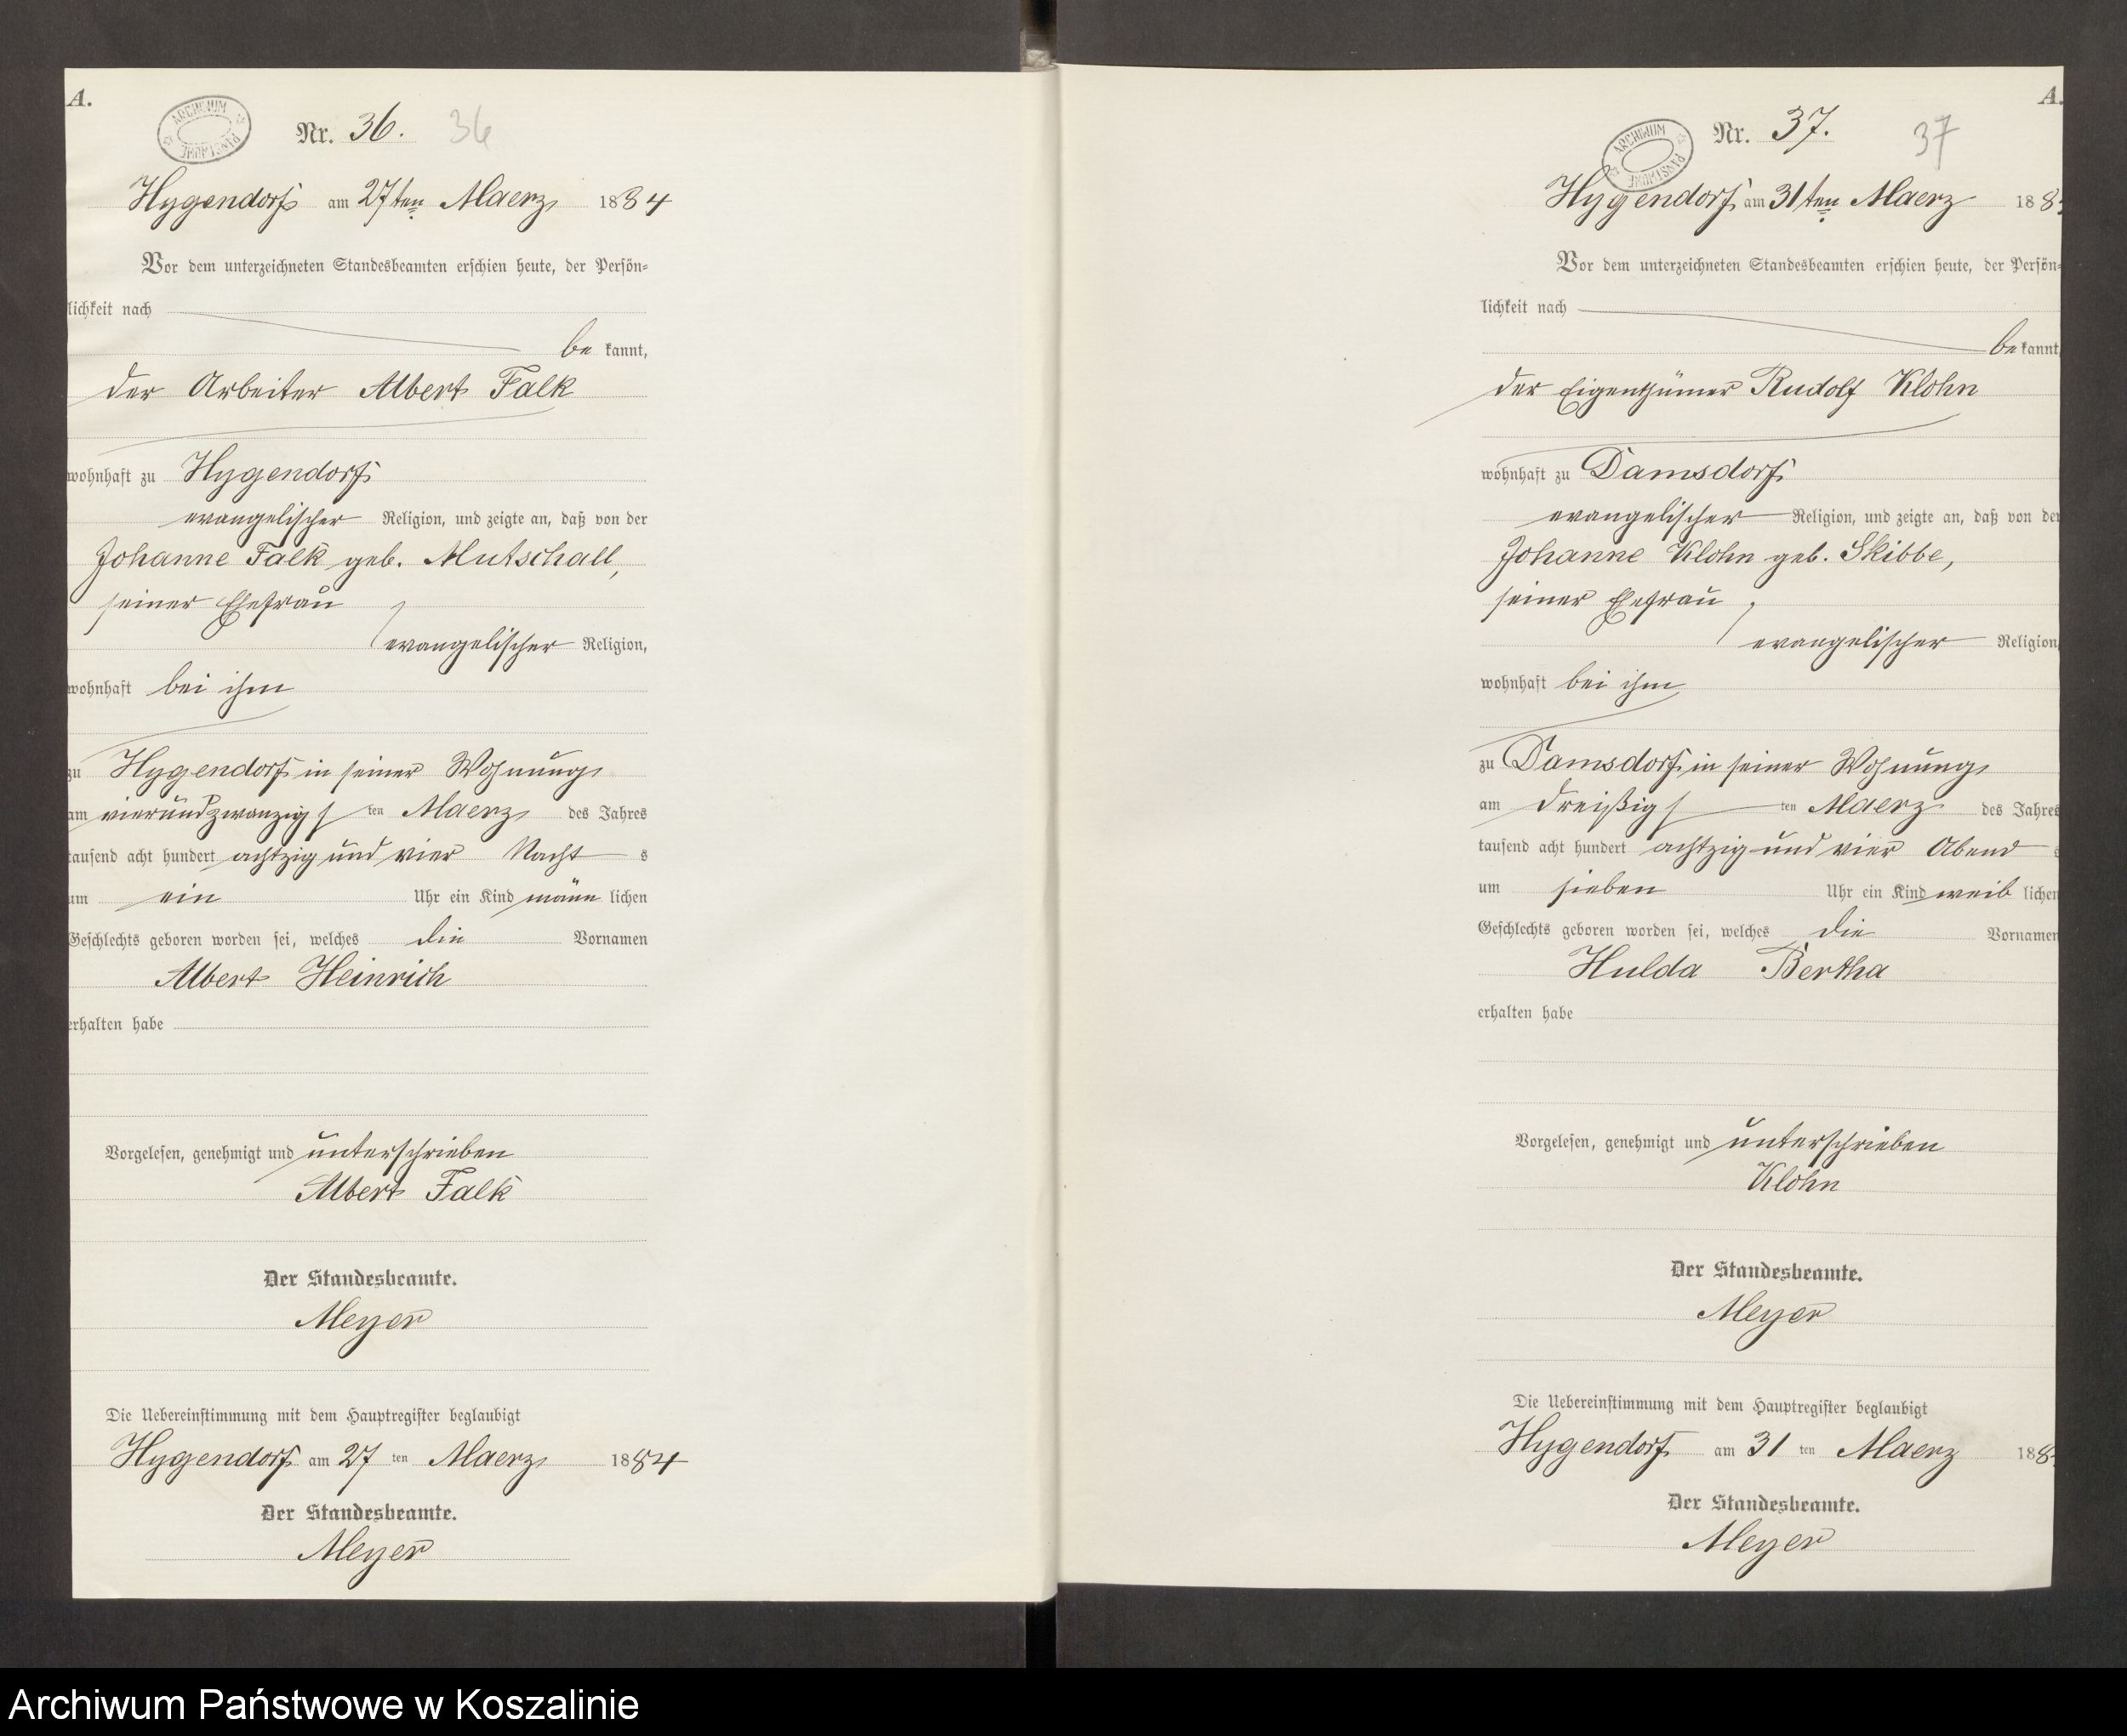 A.
ARCHIWUM PAŃSTWOWE
Nr. 36. 36
Hygendorf am 27ten Maerz 1884
Vor dem unterzeichneten Standesbeamten erschien heute, der Persön-
lichkeit nach
be kannt,
der Arbeiter Albert Falk
wohnhaft zu Hygendorf
evangelischer Religion, und zeigte an, daß von der
Johanne Falk geb. Mutschall,
seiner Ehefrau
evangelischer Religion,
wohnhaft bei ihm
zu Hygendorf in seiner Wohnung
am vierundzwanzigs ten Maerz des Jahres
tausend acht hundert achtzig und vier Nacht s
um ein Uhr ein Kind männ lichen
Geschlechts geboren worden sei, welches die Vornamen
Albert Heinrich
erhalten habe
Vorgelesen, genehmigt und unterschrieben
Albert Falk
Der Standesbeamte.
Meyer
Die Uebereinstimmung mit dem Hauptregister beglaubigt
Hygendorf am 27 ten Maerz 1884
Der Standesbeamte.
Meyer
A.
ARCHIWUM PAŃSTWOWE
Nr. 37. 37
Hygendorf am 31ten Maerz 188
Vor dem unterzeichneten Standesbeamten erschien heute, der Persön-
lichkeit nach
be kannt,
der Eigenthümer Rudolf Klohn
wohnhaft zu Damsdorf
evangelischer Religion, und zeigte an, daß von der
Johanne Klohn geb. Skibbe,
seiner Ehefrau,
evangelischer Religion,
wohnhaft bei ihm
zu Damsdorf in seiner Wohnung
am dreißigs ten Maerz des Jahres
tausend acht hundert achtzig und vier Abend s
um sieben Uhr ein Kind weib lichen
Geschlechts geboren worden sei, welches die Vornamen
Hulda Bertha
erhalten habe
Vorgelesen, genehmigt und unterschrieben
Klohn
Der Standesbeamte.
Meyer
Die Uebereinstimmung mit dem Hauptregister beglaubigt
Hygendorf am 31 ten Maerz 188
Der Standesbeamte.
Meyer
Archiwum Państwowe w Koszalinie